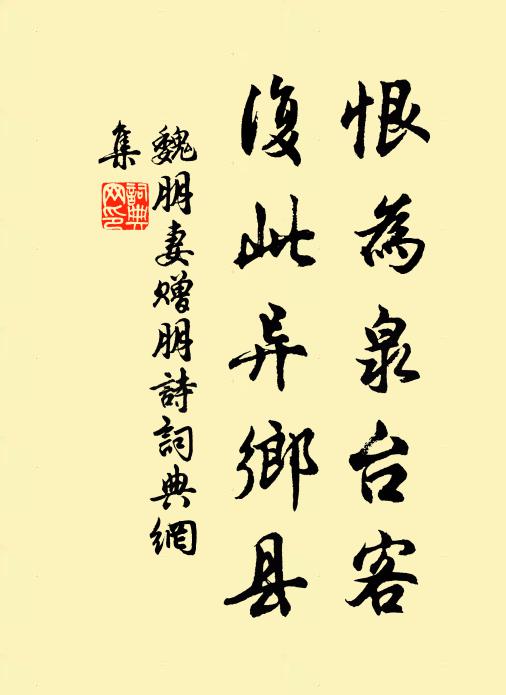 恨為泉台客
復此异鄉县
魏朋妻赠朋詩詞典網
集
詞典
网印